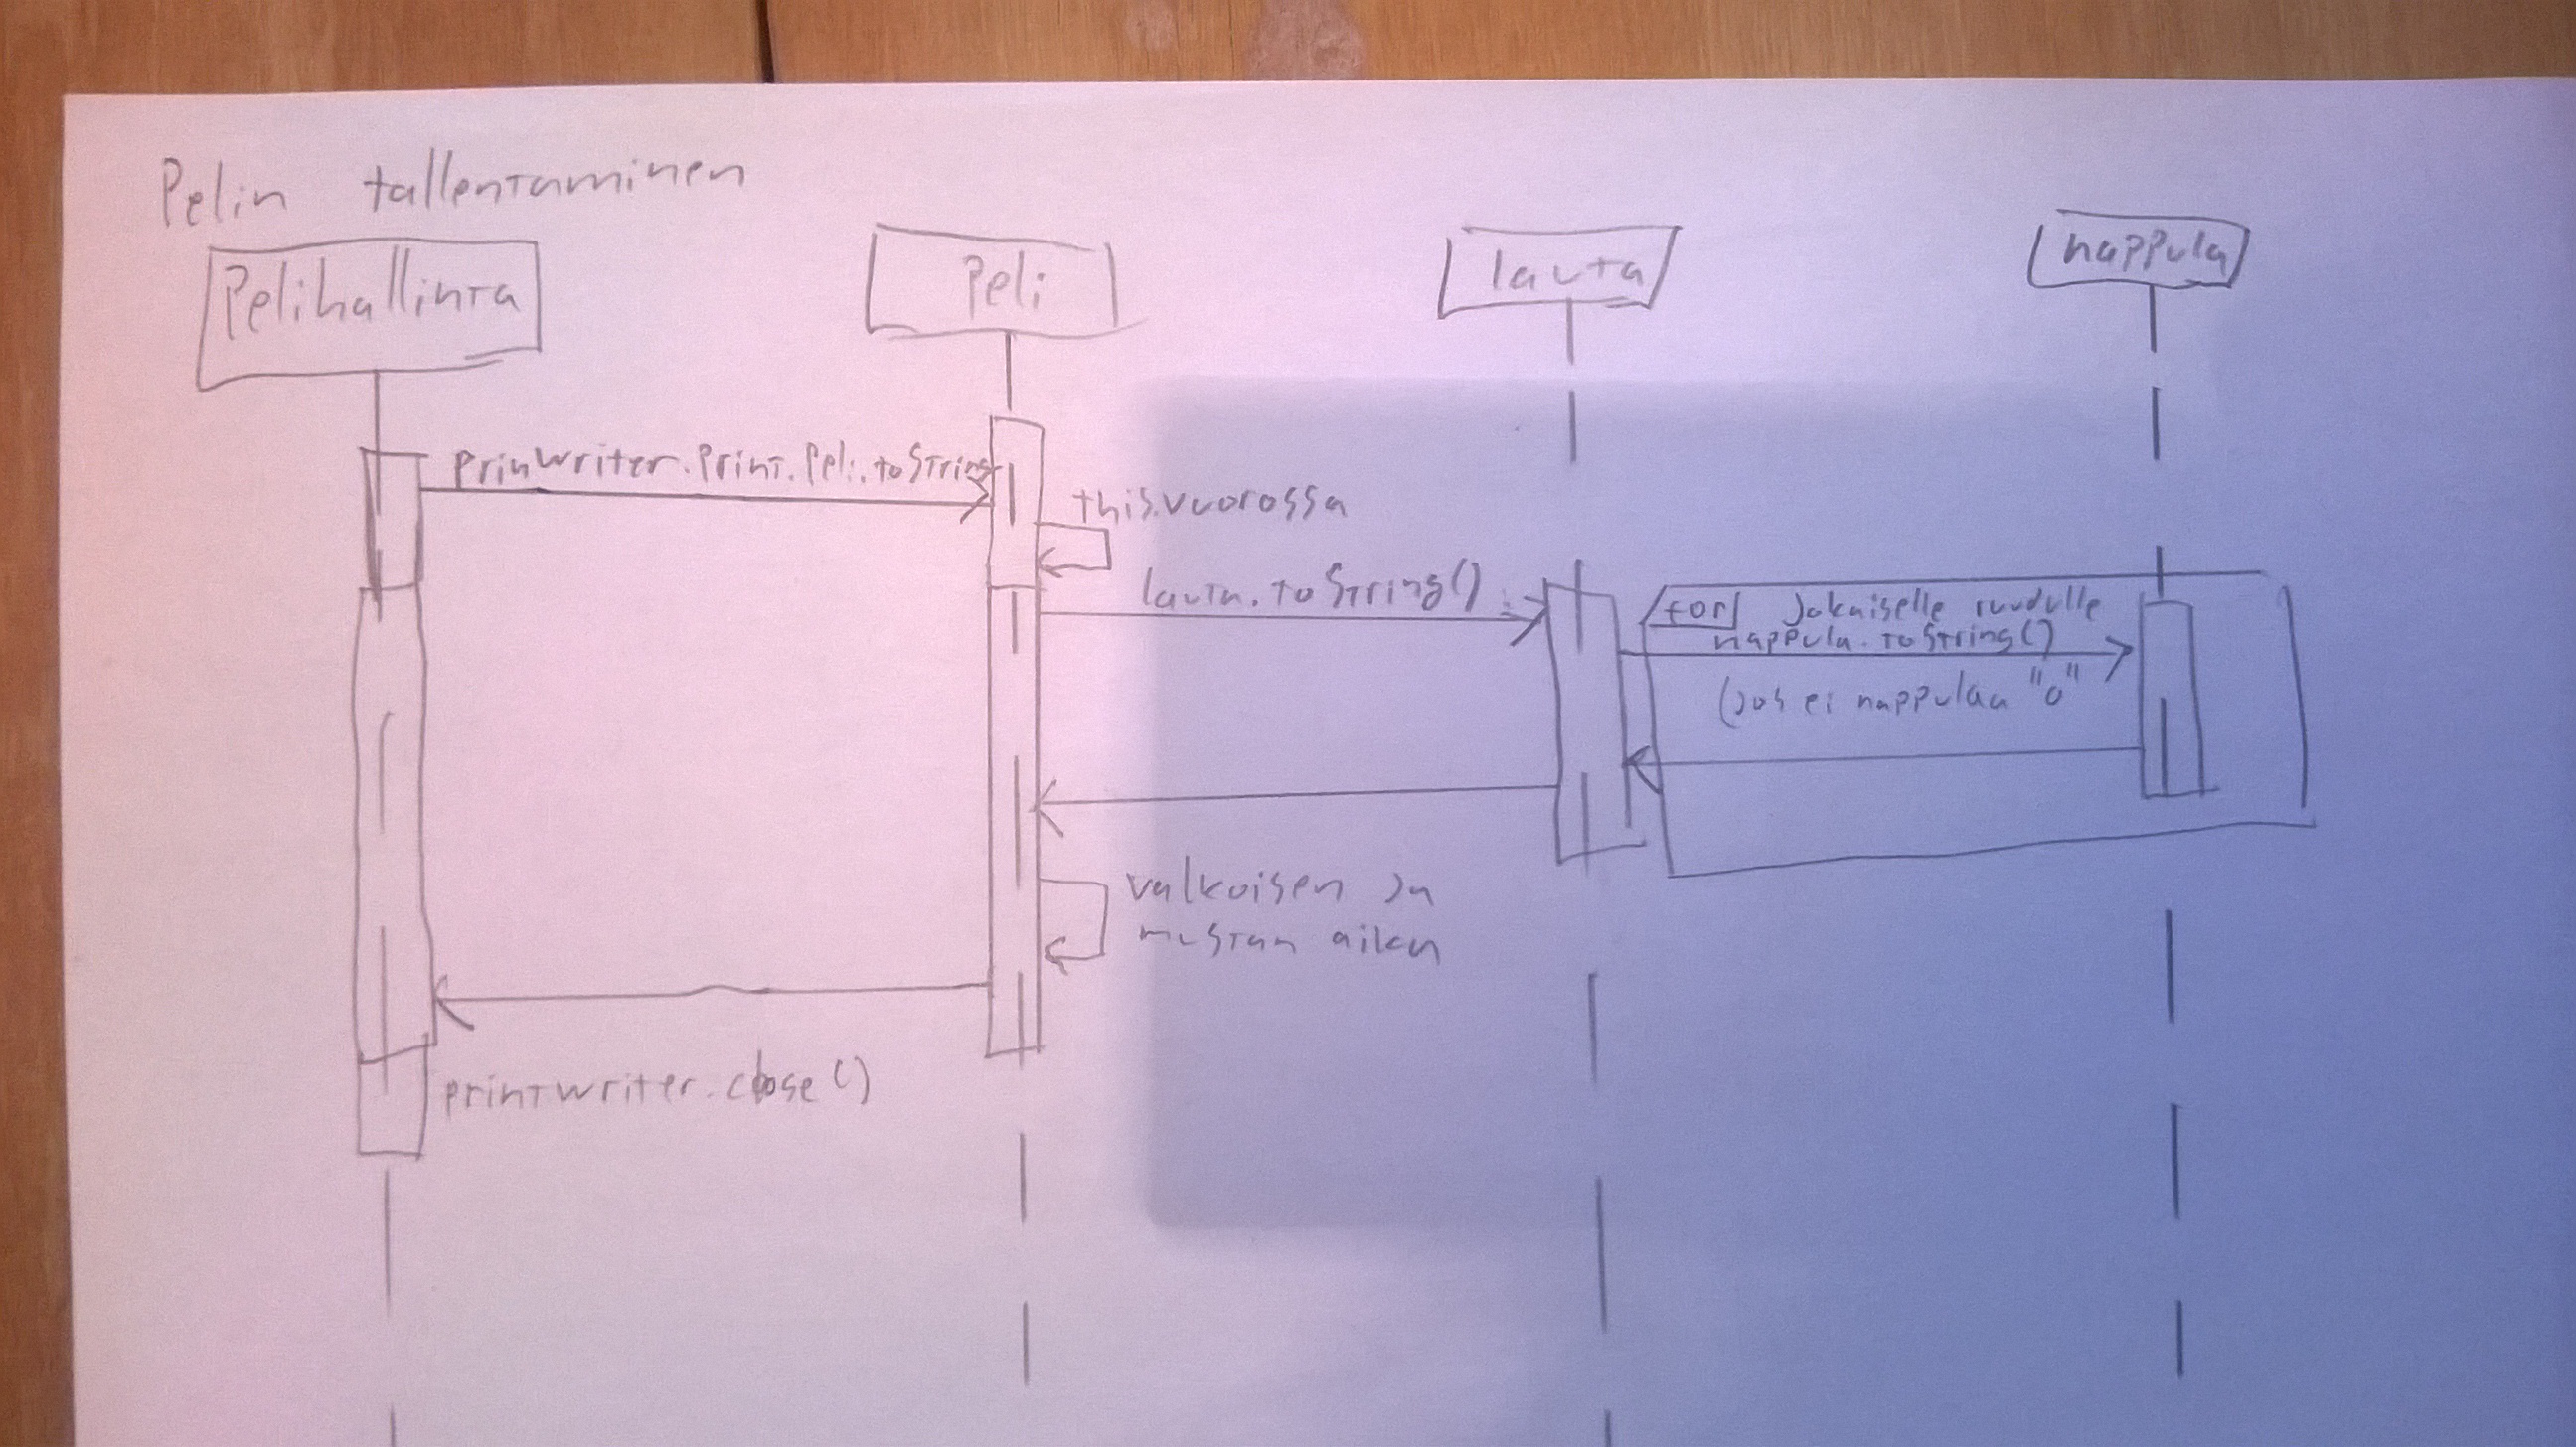 Pelin tallentaminen
Pelihallinta
Peli
lauta
nappula
prinWriter.print.Peli.toString
this.vuorossa
lauta.toString()
for Jokaiselle ruudulle
nappula.toString()
(Jos ei nappulaa "o"
valkoisen ja
mustan aika
printwriter.close()